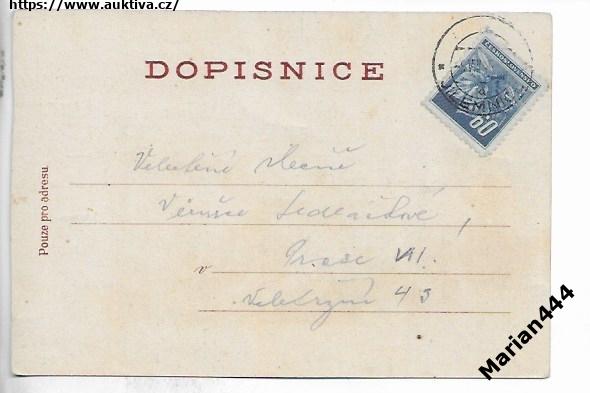 https://www.auktiva.cz/
DOPISNICE
ČESKOSLOVENSKO
60
JILEMNICE
Pouze pro adresu
slečně
Sedláčkové,
v Praze VII.
Veletržní 43
Marian444